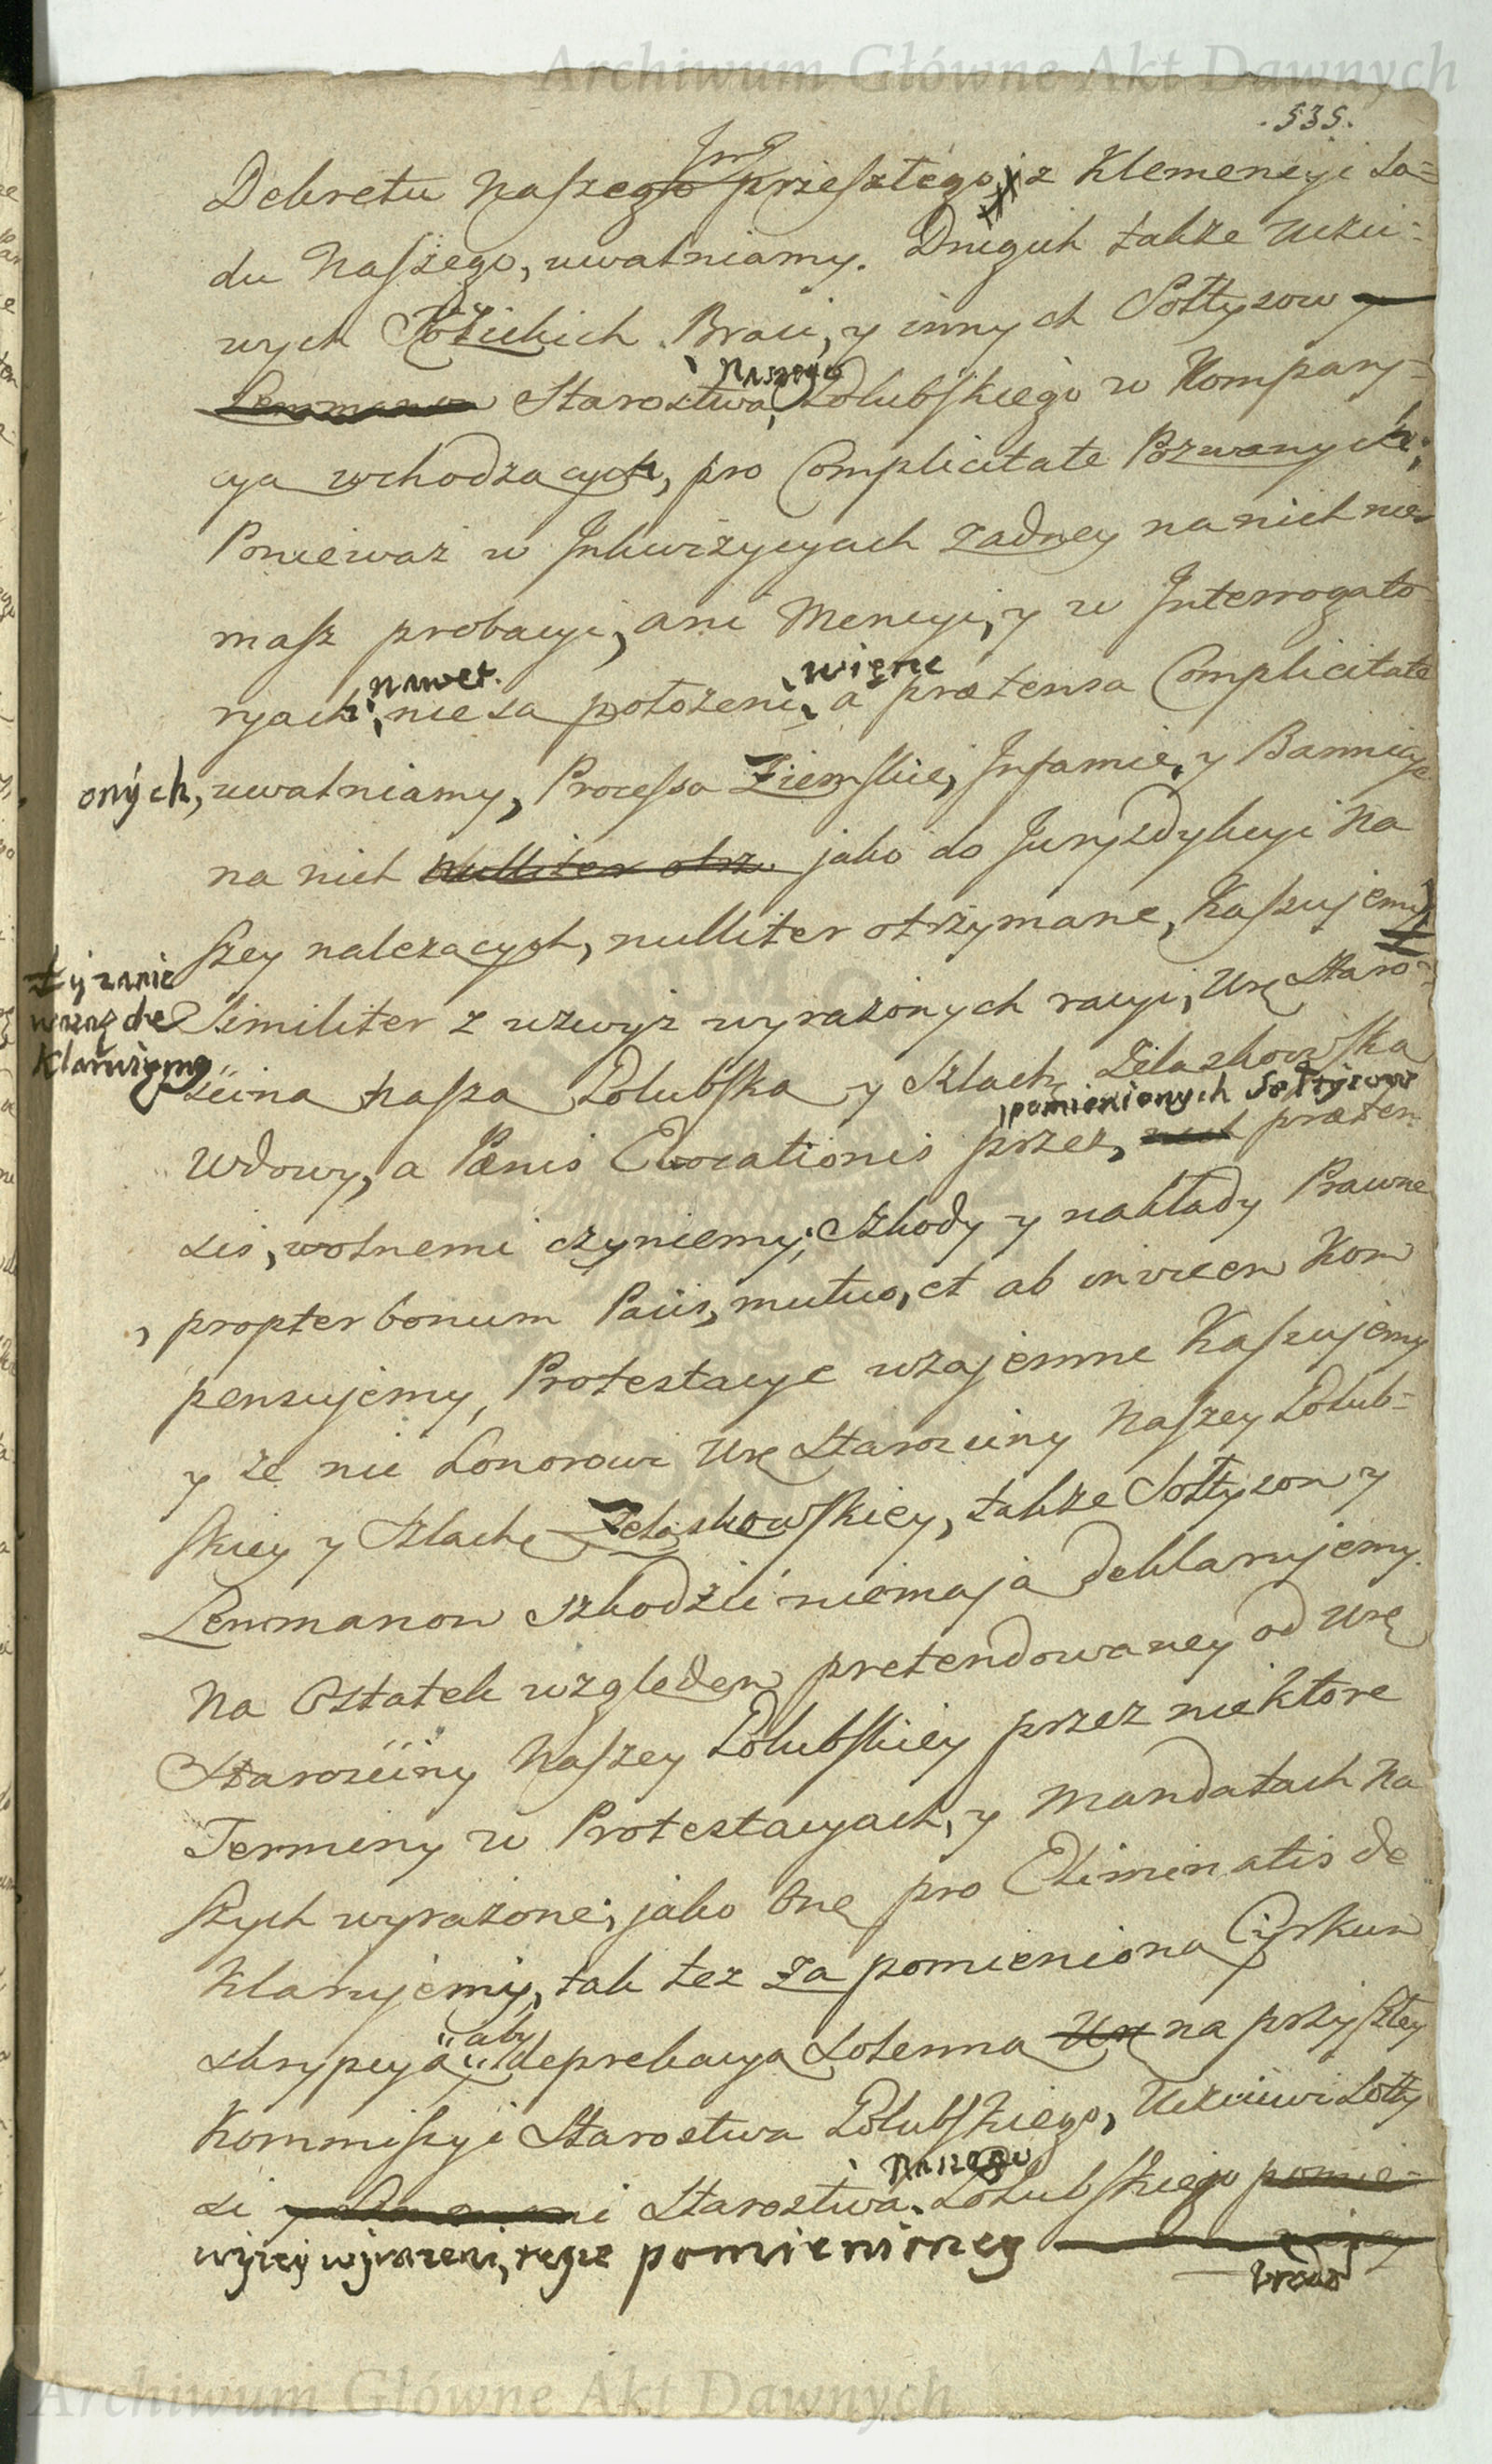 Archiwum Główne Akt Dawnych
.535.
Dekretu Naszego przeszłego, z Klemencyi Są=
du Naszego, uwalniamy. Drugich także Uczci=
wych Kozickich Braci, y innych Sołtysow y
Lenmanow Starostwa, Naszego Lolubskiego w Kompary=
cya wchodzących, pro Complicitate Pozwanych,
Ponieważ w Inkwizycyach Zadney na nich niem
masz probacyi, ani Mencyi, y w Interrogato
ryach, nawet nie są położeni, więc a prætensa Complicitate
onych, uwalniamy, Processa Ziemskie, Infamie, y Bannicye
na nich nulliter otrz. jako do Juryzdykcyi Na
szey należących, nulliter otrzymane, Kassujemy
y znie
wazne de
klaruiemy
Similiter z wzwyż wyrażonych racyi, Urę Staro=
ścina Nasza Lolubska y Szlachę Żelaskowska
pomienionych Sołtysow
Wdowy, a Pœnis Evocationis przez, nich præten
sis, wolnemi czyniemy; Szkody y nakłady Prawne
, propter bonum Pacis, mutuo, et ab invicem Kom
pensujemy, Protestacye wzajemne Kassujemy
y że nic honorowi Urę Starościny Naszey Lolub=
skiey y Szlachę Żelaskowskiey, także Sołtysow y
Lenmanow szkodzić niemają deklarujemy.
Na Ostatek względem pretendowaney od Urę
Starościny Naszey Lolubskiey przez niektore
Terminy w Protestacyach, y Mandatach Na
szych wyrażone, jako One pro Eliminatis de
klarujemy, tak też za pomieniona Cyrkum
skrypcyą, aby deprekacya solenna Urę na przyszłey
Kommissyi Starostwa Lolubskiego, Uczciwi Sołty
si y Lenmani Starostwa, Naszego Lolubskiego pomie=
wyżey wyrażeni, teyże pomienioney
Urodz
Archiwum Główne Akt Dawnych